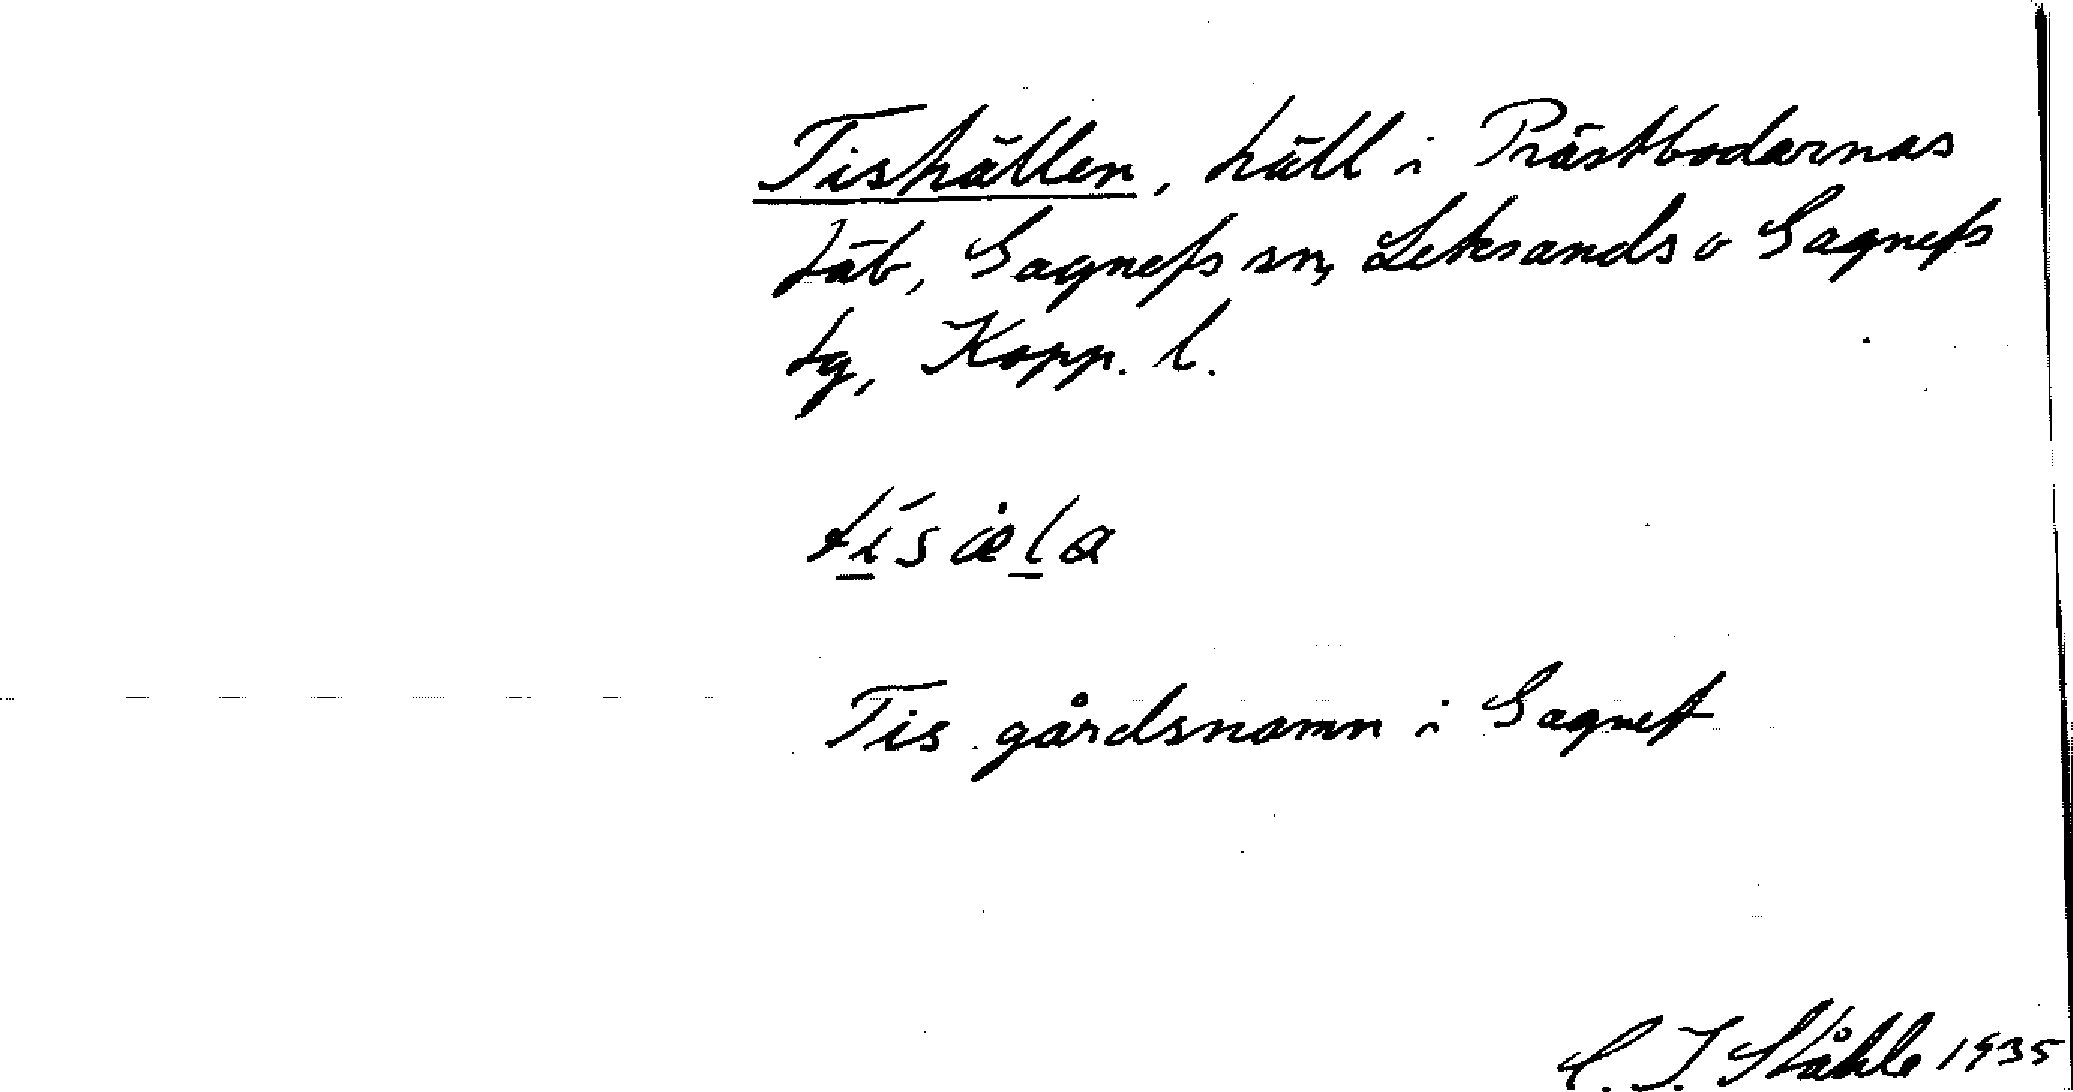 Tishällen, häll i Prästbodarnas
fäb, Gagnefs sn, Leksands o Gagnefs
tg, Kopp. l.
tísæ̀la
Tis gårdsnamn i Gagnef
C. I. Ståhle 1935